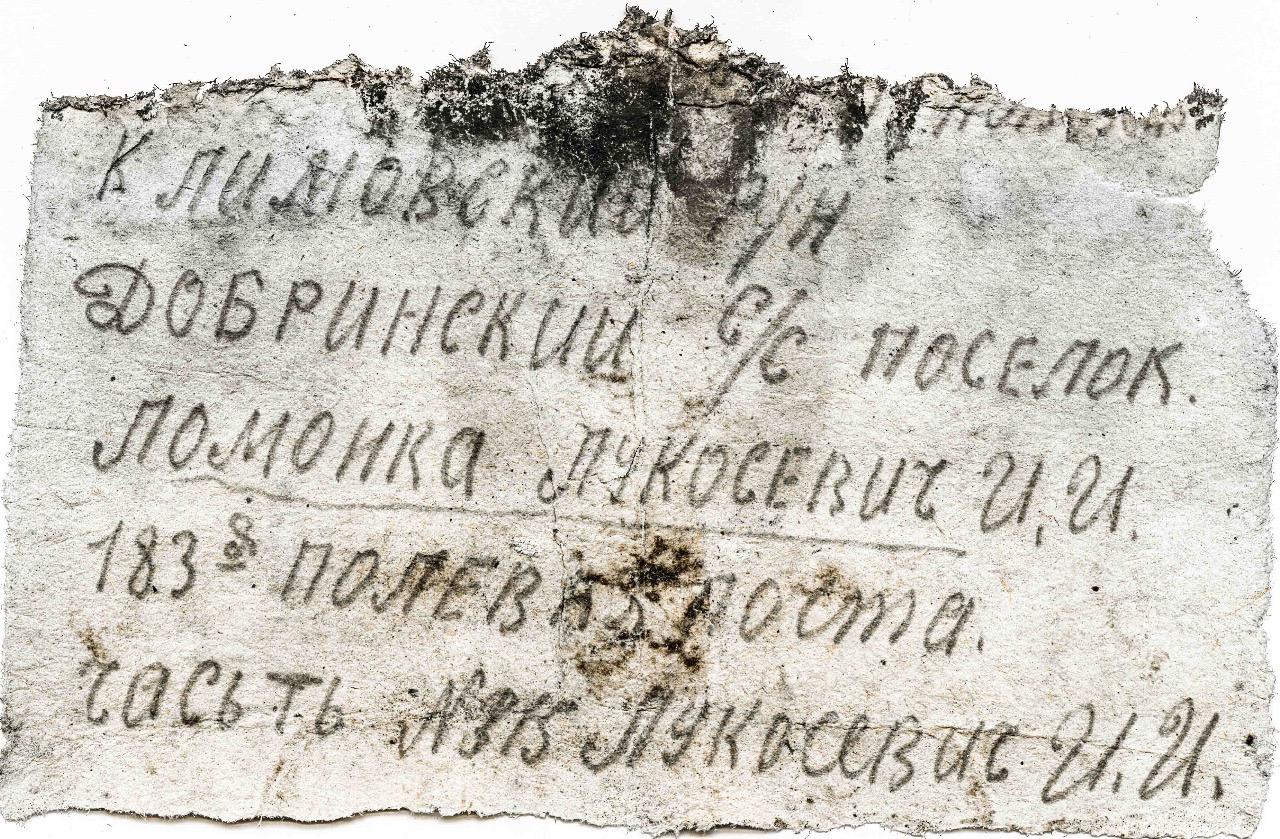 КЛИМОВСКИЙ Р/Н
ДОБРИНСКИЙ С/С ПОСЕЛОК.
ЛОМОНКА ЛУКОСЕВИЧ И.И.
183я ПОЛЕВАЯ ПОЧТА.
ЧАСЬТЬ ЛУКОСЕВИЧ И.И.